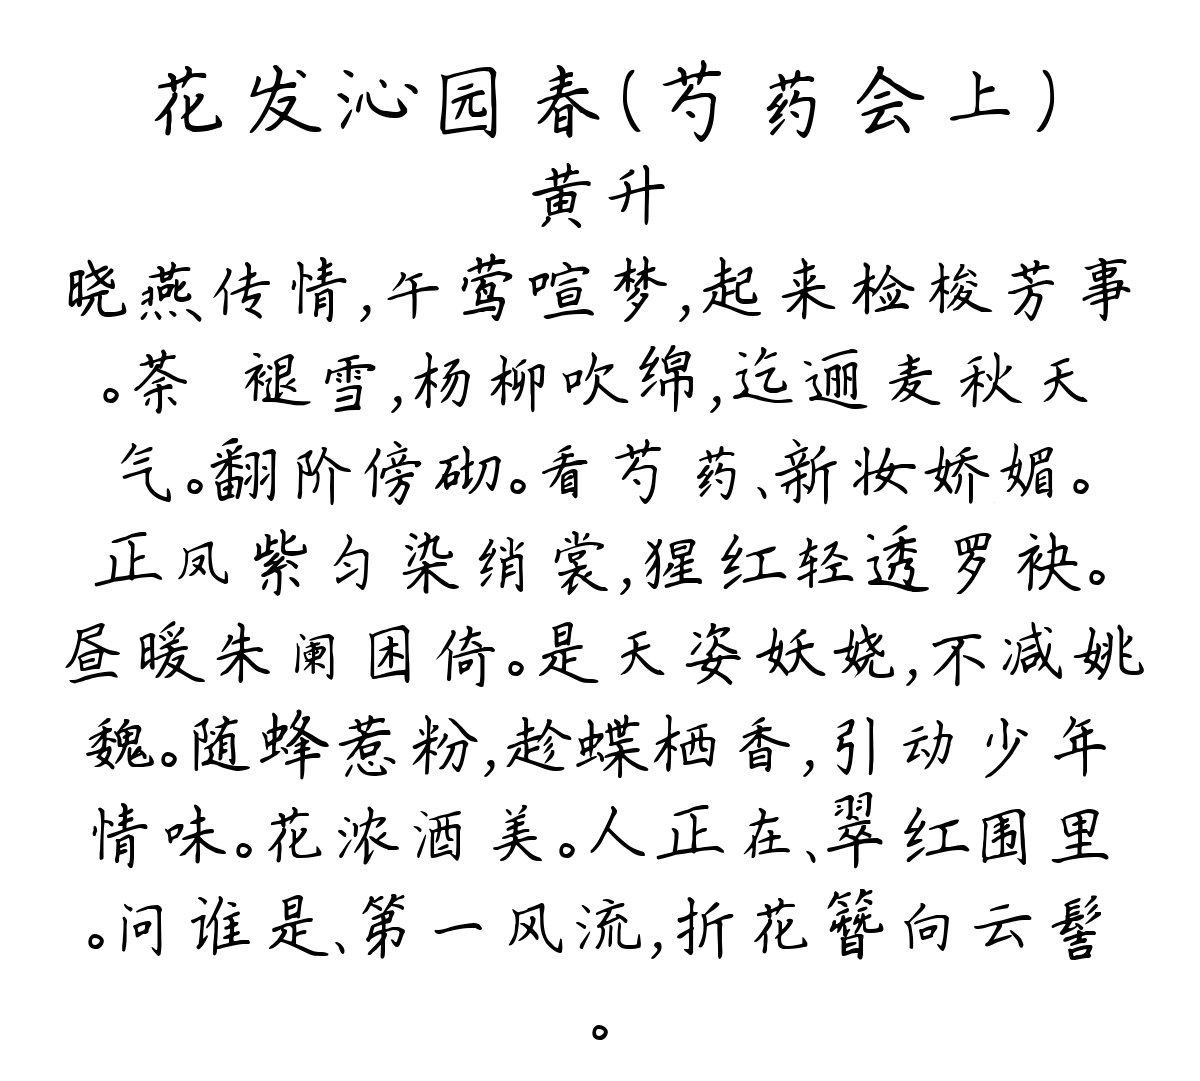 花发沁园春(芍药会上)
黄升
晓燕传情,午莺喧梦,起来检梭芳事
。荼 褪雪,杨柳吹绵,迄逦麦秋天
气。翻阶傍砌。看芍药、新妆娇媚。
正凤紫匀染绡裳,猩红轻透罗袂。
昼暖朱阑困倚。是天姿妖娆,不减姚
魏。随蜂惹粉,趁蝶栖香,引动少年
情味。花浓酒美。人正在、翠红围里
。问谁是、第一风流,折花簪向云髻
。